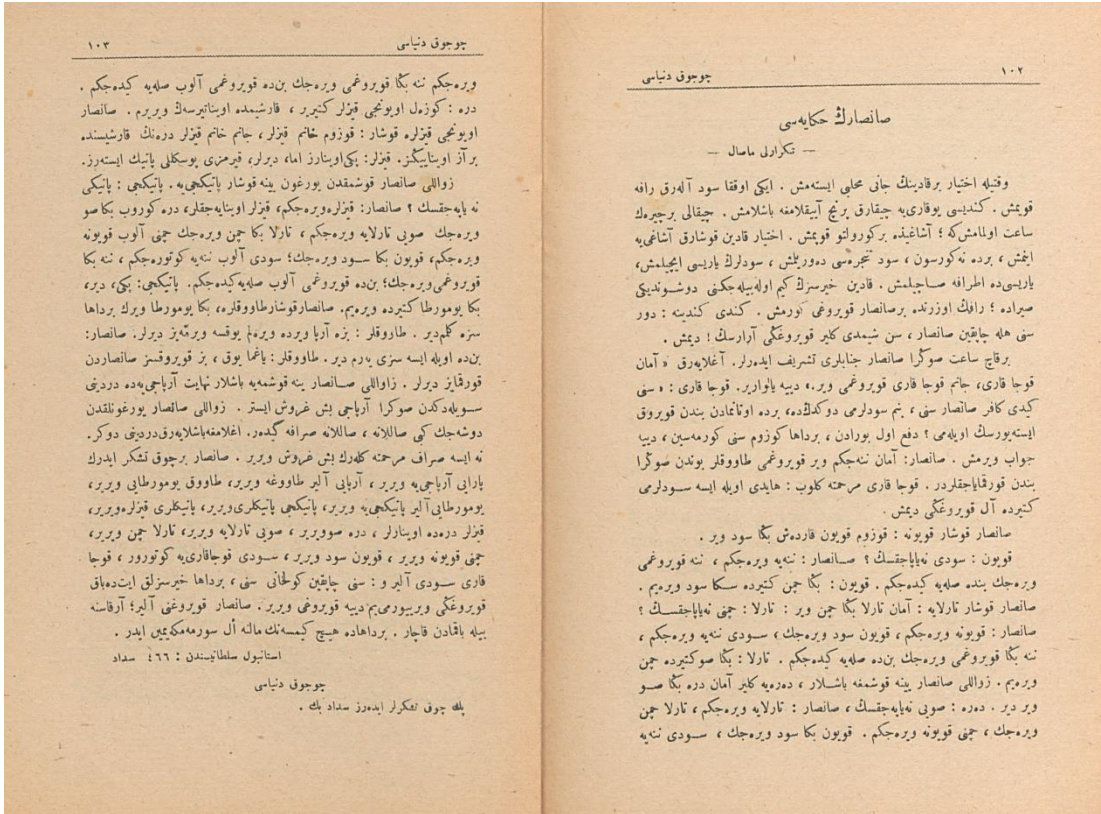 ١٠٢
چوجوق دنیاسی
صانصارڭ حكایه‌سی
— تكرارلی ماصال —
وقتیله اختیار بر قادینك جانی محلبی ایسته‌مش . ایكی اوققا سود آله‌رق رافه
قویمش . كندیسی یوقاری‌یه چیقارق برنج آییقلامغه باشلامش . چیقالی برچیره‌ك
ساعت اولمامش‌كه ؛ آشاغیده بركورولتو قویمش . اختیار قادین قوشارق آشاغی‌یه
اینمش ، برده نه‌كورسون ، سود تنجره‌سی ده‌وریلمش ، سودلرك یاریسی ایچیلمش،
یاریسی‌ده اطرافه صاچیلمش . قادین خیرسزڭ كیم اوله‌بیله‌جكنی دوشوندیكی
صراده ؛ رافڭ اوزرنده برصانصار قویروغی كورمش . كندی كندینه : دور
سنی هله چاپقین صانصار ، سن شیمدی كلیر قویروغڭی آرارسڭ ! دیمش .
برقاچ ساعت صوڭرا صانصار جنابلری تشریف ایده‌رلر . آغلایه‌رق « آمان
قوجا قاری، جانم قوجا قاری قویروغمی ویر.» دییه یالواریر. قوجا قاری : « سنی
كیدی كافر صانصار سنی ، بنم سودلرمی دوكدكده، برده اوتانمادن بندن قویروق
ایسته‌یورسڭ اویله‌می ؟ دفع اول بورادن ، برداها كوزوم سنی كورمه‌سین ، دییه
جواب ویرمش . صانصار: آمان ننه‌جكم ویر قویروغمی طاووقلر بوندن صوڭرا
بندن قورقمایاجقلردر . قوجا قاری مرحمته كلوب : هایدی اویله ایسه سودلرمی
كتیرده آل قویروغڭی دیمش .
صانصار قوشار قویونه : قوزوم قویون قارده‌ش بكا سود ویر .
قویون : سودی نه‌یاپاجقسڭ ؟ صانصار : ننه‌یه ویره‌جكم ، ننه قویروغمی
ویره‌جك بنده صله‌یه كیده‌جكم . قویون : بكا چمن كتیرده سكا سود ویره‌یم .
صانصار قوشار تارلایه : آمان تارلا بكا چمن ویر : تارلا : چمنی نه‌یاپاجقسڭ ؟
صانصار : قویونه ویره‌جكم ، قویون سود ویره‌جك ، سودی ننه‌یه ویره‌جكم ،
ننه بكا قویروغمی ویره‌جك بن‌ده صله‌یه كیده‌جكم . تارلا : بكا صو كتیرده چمن
ویره‌یم . زواللی صانصار ینه قوشمغه باشلار ، دره‌یه كلیر آمان دره بكا صو
ویر دیر . دره : صویی نه‌یاپه‌جقسڭ ، صانصار : تارلایه ویره‌جكم ، تارلا چمن
ویره‌جك ، چمنی قویونه ویره‌جكم . قویون بكا سود ویره‌جك ، سودی ننه‌یه
چوجوق دنیاسی
١٠٣
ویره‌جكم ننه بكا قویروغمی ویره‌جك بن‌ده قویروغمی آلوب صله‌یه كیده‌جكم .
دره : كوزه‌ل اویونجی قیزلر كتیریر ، قارشیمده اویناتیرسه‌ڭ ویریرم . صانصار
اویونجی قیزلره قوشار : قوزوم خانم قیزلر ، جانم خانم قیزلر دره‌نڭ قارشیسنده
بر آز اوینایڭز. قیزلر: پكی‌اوینارز اما، دیرلر، قیرمزی پوسكللی پاتیك ایسته‌رز.
زواللی صانصار قوشمقدن یورغون ینه قوشار پاتیكجی‌یه . پاتیكجی : پاتیكی
نه یاپه‌جقسڭ ؟ صانصار: قیزلره‌ویره‌جكم، قیزلر اوینایه‌جقلر، دره كوروب بكاصو
ویره‌جك صویی تارلایه ویره‌جكم ، تارلا بكا چمن ویره‌جك چمنی آلوب قویونه
ویره‌جكم، قویون بكا سود ویره‌جك؛ سودی آلوب ننه‌یه كوتوره‌جكم ، ننه بكا
قویروغمی‌ویره‌جك؛ بن‌ده قویروغمی آلوب صله‌یه‌كیده‌جكم. پاتیكجی: پكی، دیر،
بكا یومورطا كتیرده ویره‌یم. صانصارقوشارطاووقلره، بكا یومورطا ویرك برداها
سزه كلمم‌دیر . طاووقلر : بزه آرپا ویرده ویره‌لم یوقسه ویرمه‌یز دیرلر. صانصار:
بن‌ده اویله ایسه سزی یه‌رم دیر . طاووقلر : یاغما یوق ، بز قویروقسز صانصاردن
قورقمایز دیرلر . زاواللی صانصار ینه قوشمه‌یه باشلار نهایت آرپاجی‌یه‌ده دردینی
سویله‌دكدن صوكرا آرپاجی بش غروش ایستر . زواللی صانصار یورغونلقدن
دوشه‌جك كبی صاللانه ، صاللانه صرافه گیده‌ر. اغلامغه‌باشلایه‌رق‌دردینی دوكر.
نه ایسه صراف مرحمته كله‌رك بش غروش ویریر . صانصار برچوق تشكر ایدرك
پارایی آرپاجی‌یه ویریر ، آرپایی آلیر طاووغه ویریر، طاووق یومورطایی ویریر،
یومورطایی آلیر پاتیكجی‌یه ویریر، پاتیكجی پاتیكلری‌ویریر، پاتیكلری قیزلره‌ویریر،
قیزلر دره‌ده اوینارلر ، دره صوویریر ، صویی تارلایه ویریر، تارلا چمن ویریر،
چمنی قویونه ویریر ، قویون سود ویریر ، سودی قوجاقاری‌یه كوتورور ، قوجا
قاری سودی آلیر و : سنی چاپقین كولخانی سنی ، برداها خیرسزلق ایت‌ده‌باق
قویروغڭی ویرییورمی‌یم دییه قویروغی ویریر. صانصار قویروغنی آلیر؛ آرقاسنه
بیله باقمادن قاچار . برداهاده هیچ كیمسه‌نك مالنه أل سورمه‌مكه‌یمین ایدر .
استانبول سلطانیسندن : ٤٦٦ سداد
چوجوق دنیاسی
پك چوق تشكرلر ایده‌رز سداد بك .